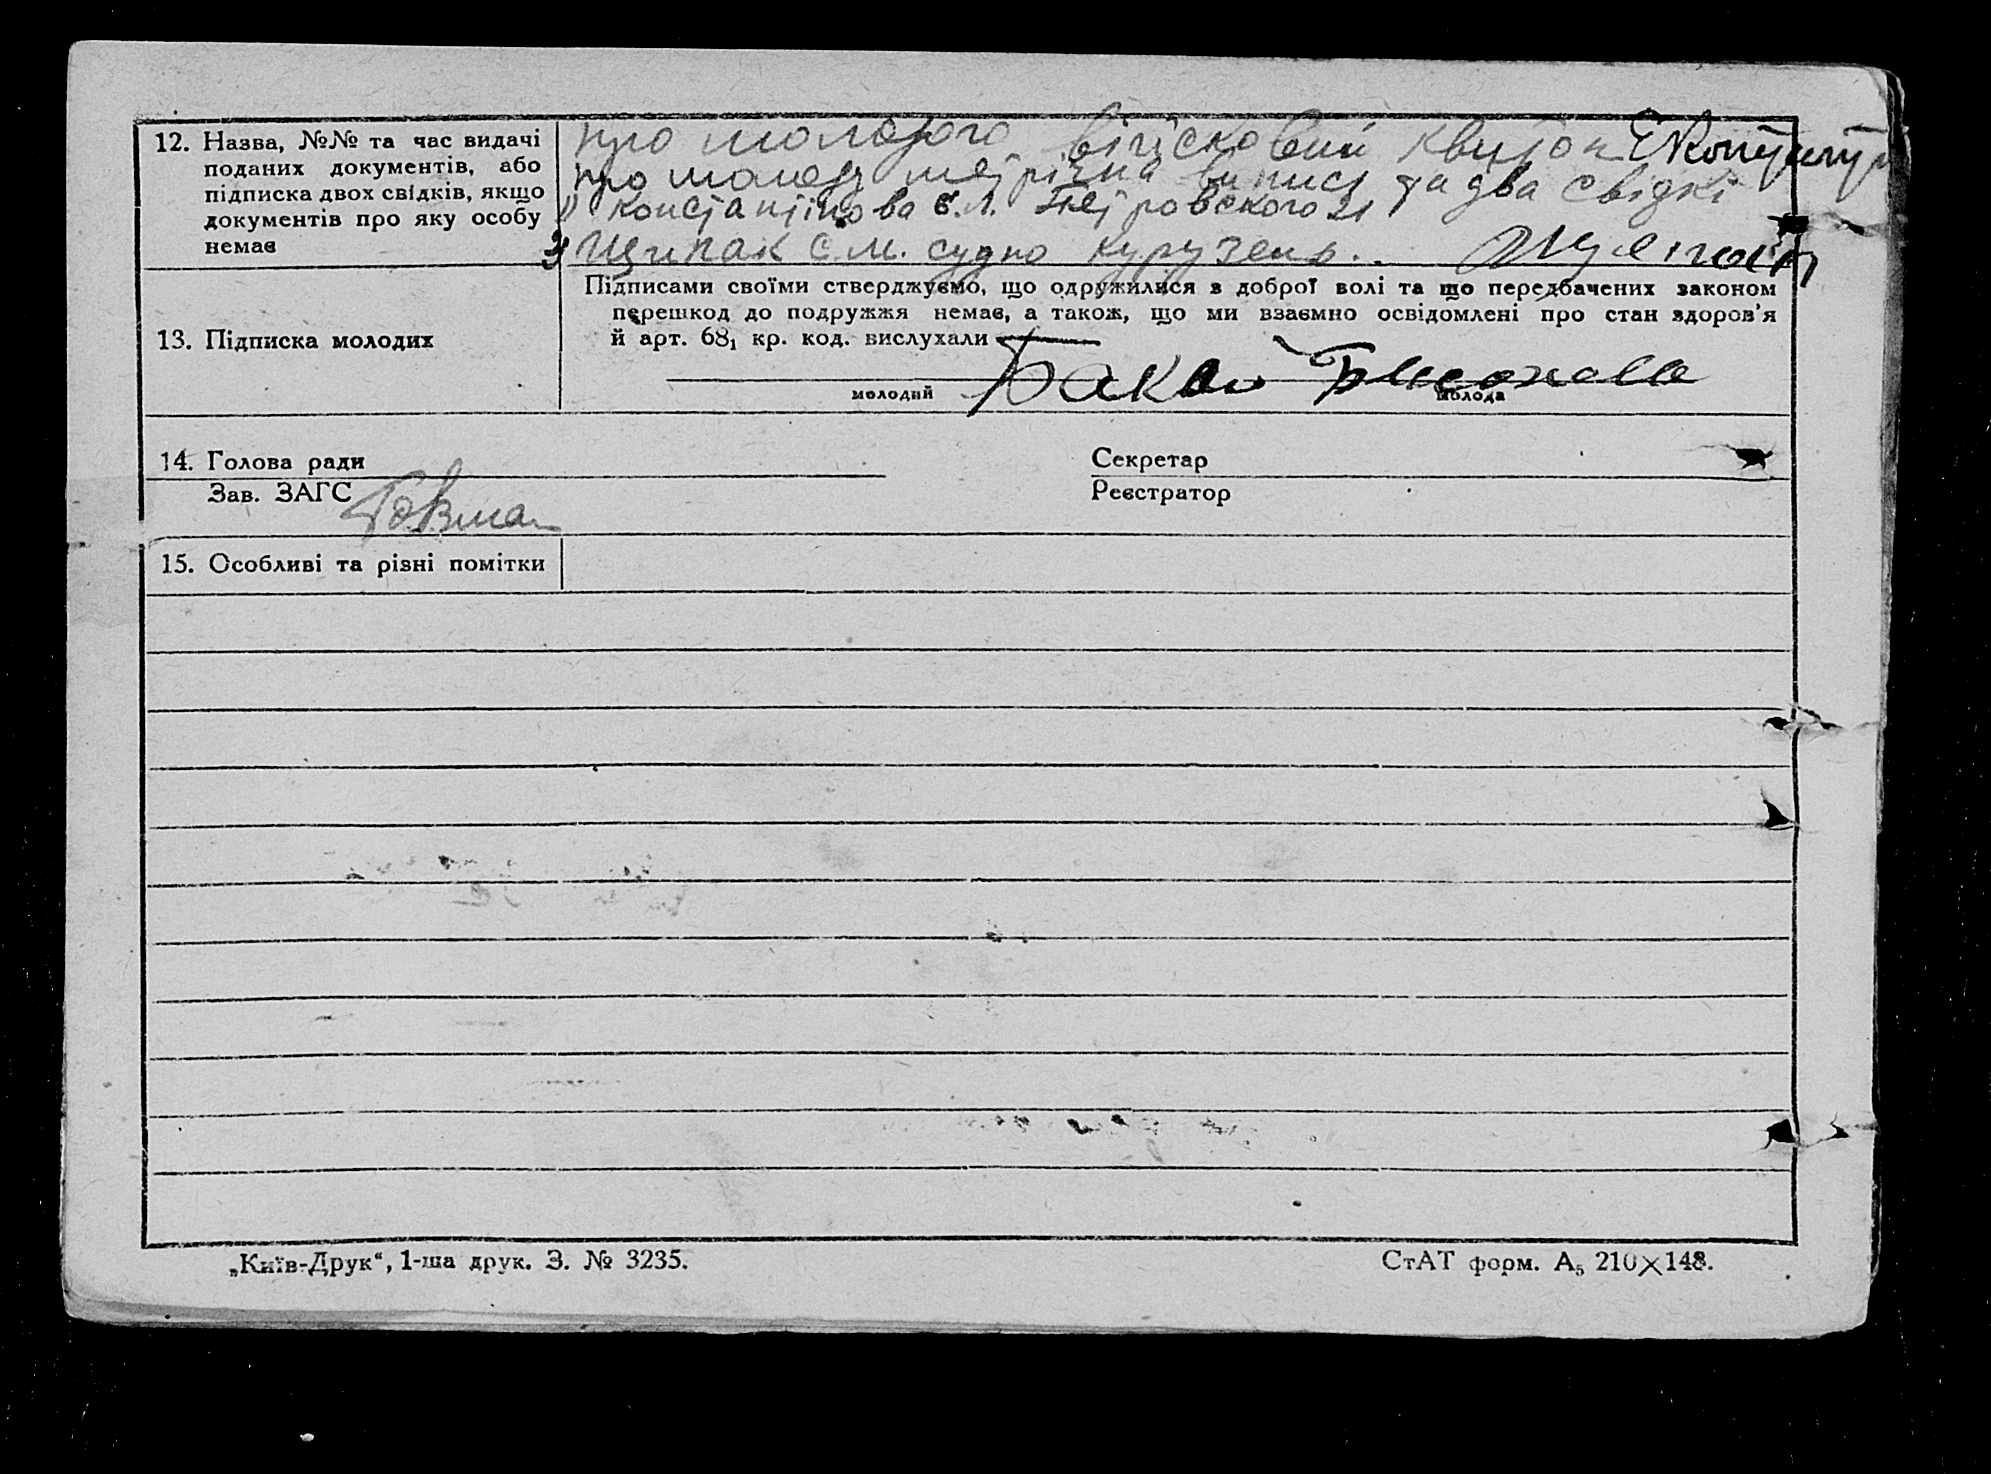 12. Назва, №№ та час видачі
поданих документів, або
підписка двох свідків, якщо
документів про яку особу
немає
про молодого війсковий квиток
про молоду метрічна випись та два свідкі
1) Константінова Є.Л. Петровского 21
2) Щипак С.М. судно
13. Підписка молодих
Підписами своїми стверджуємо, що одружилися з доброї волі та що передбачених законом
перешкод до подружжя немає, а також, що ми взаємно освідомлені про стан здоров'я
й арт. 68₁ кр. код. вислухали
молодий молода
14. Голова ради Секретар
Зав. ЗАГС Реєстратор
15. Особливі та різні помітки
„Київ-Друк“, 1-ша друк. З. № 3235. СтАТ форм. А₅ 210×148.